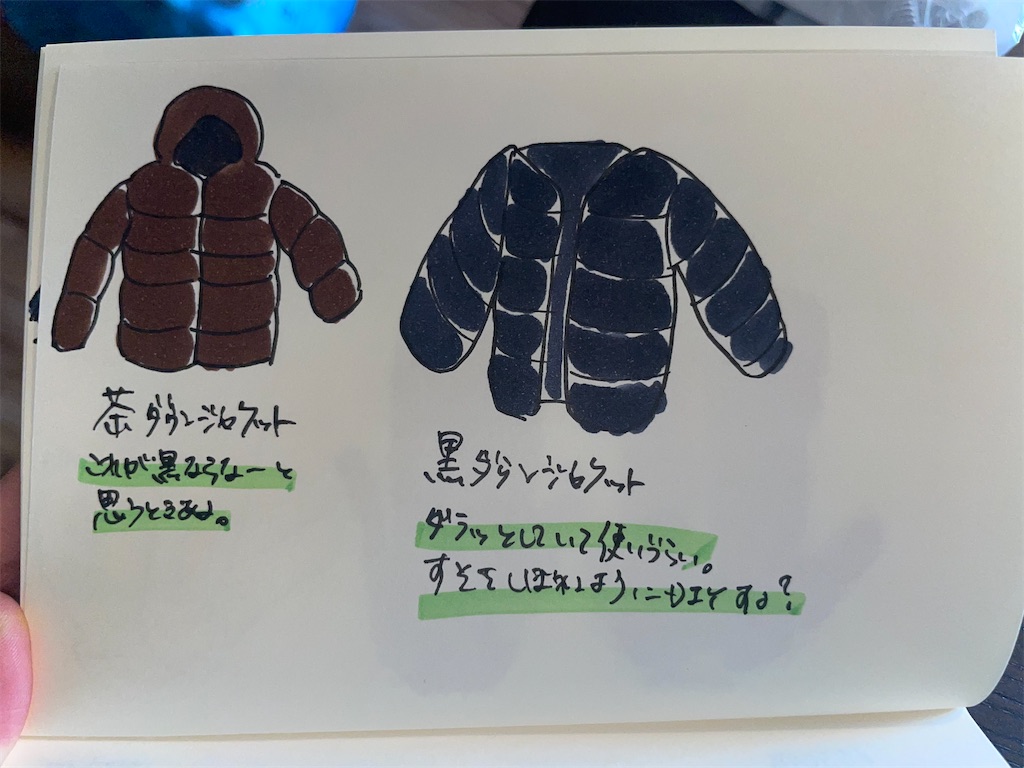 茶ダウンジャケット
これが黒ならなーと
思うときある。
黒ダウンジャケット
ダラッとしていて使いづらい。
すそをしぼれるように加工する?